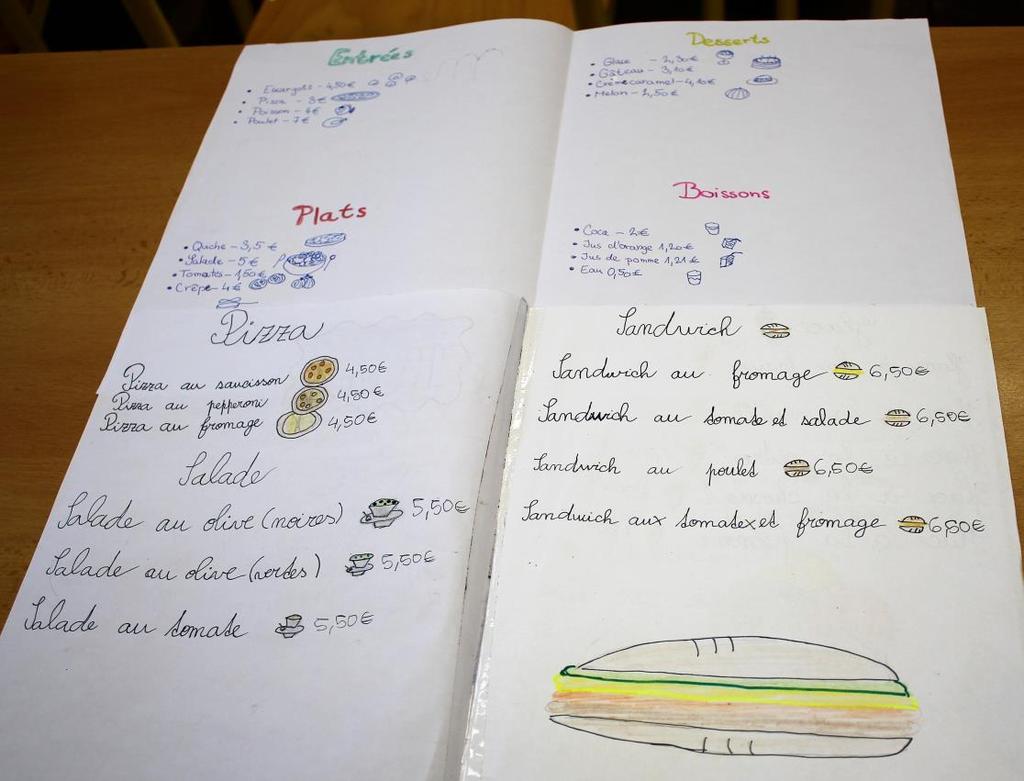 Entrées
• Escargots - 4,50€
• Pizza - 8€
• Poisson - 6€
• Poulet - 7€
Plats
• Quiche - 3,5 €
• Salade - 5€
• Tomates - 1,50€
• Crêpe - 4€
Desserts
• Glace - 2,30€
• Gâteau - 3,10€
• Crème caramel - 4,10€
• Melon - 2,50€
Boissons
• Coca - 2€
• Jus d'orange 1,20€
• Jus de pomme 1,21€
• Eau 0,50€
Pizza
Pizza au saucisson 4,50€
Pizza au pepperoni 4,50€
Pizza au fromage 4,50€
Salade
Salade au olive (noires) 5,50€
Salade au olive (vertes) 5,50€
Salade au tomate 5,50€
Sandwich
Sandwich au fromage 6,50€
Sandwich au tomate et salade 6,50€
Sandwich au poulet 6,50€
Sandwich aux tomatex et fromage 6,50€